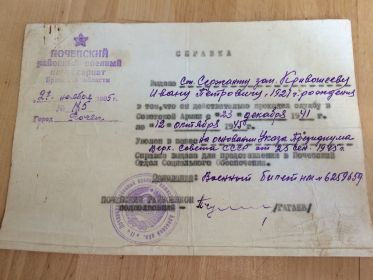 ПОЧЕПСКИЙ
районный военный
комиссариат
Брянской области
СПРАВКА
Выдана Ст. Сержанту зап. Кривошееву
Ивану Петровичу, 1921г. рождения
в том, что он действительно проходил службу в
Советской Армии с "23" декабря 1941
по "12" октября 1945г.
Уволен в запас на основании Указа Президиума
Верх. Совета СССР от 25 сен. 1945г.
Справка выдана для представления в Почепский
Отдел Социального Обеспечения.
Основание: Военный билет
ПОЧЕПСКИЙ РАЙВОЕНКОМ
ПОДПОЛКОВНИК -
/ГАГАЕВ/
"29" ноября
№ 115
Город Почеп